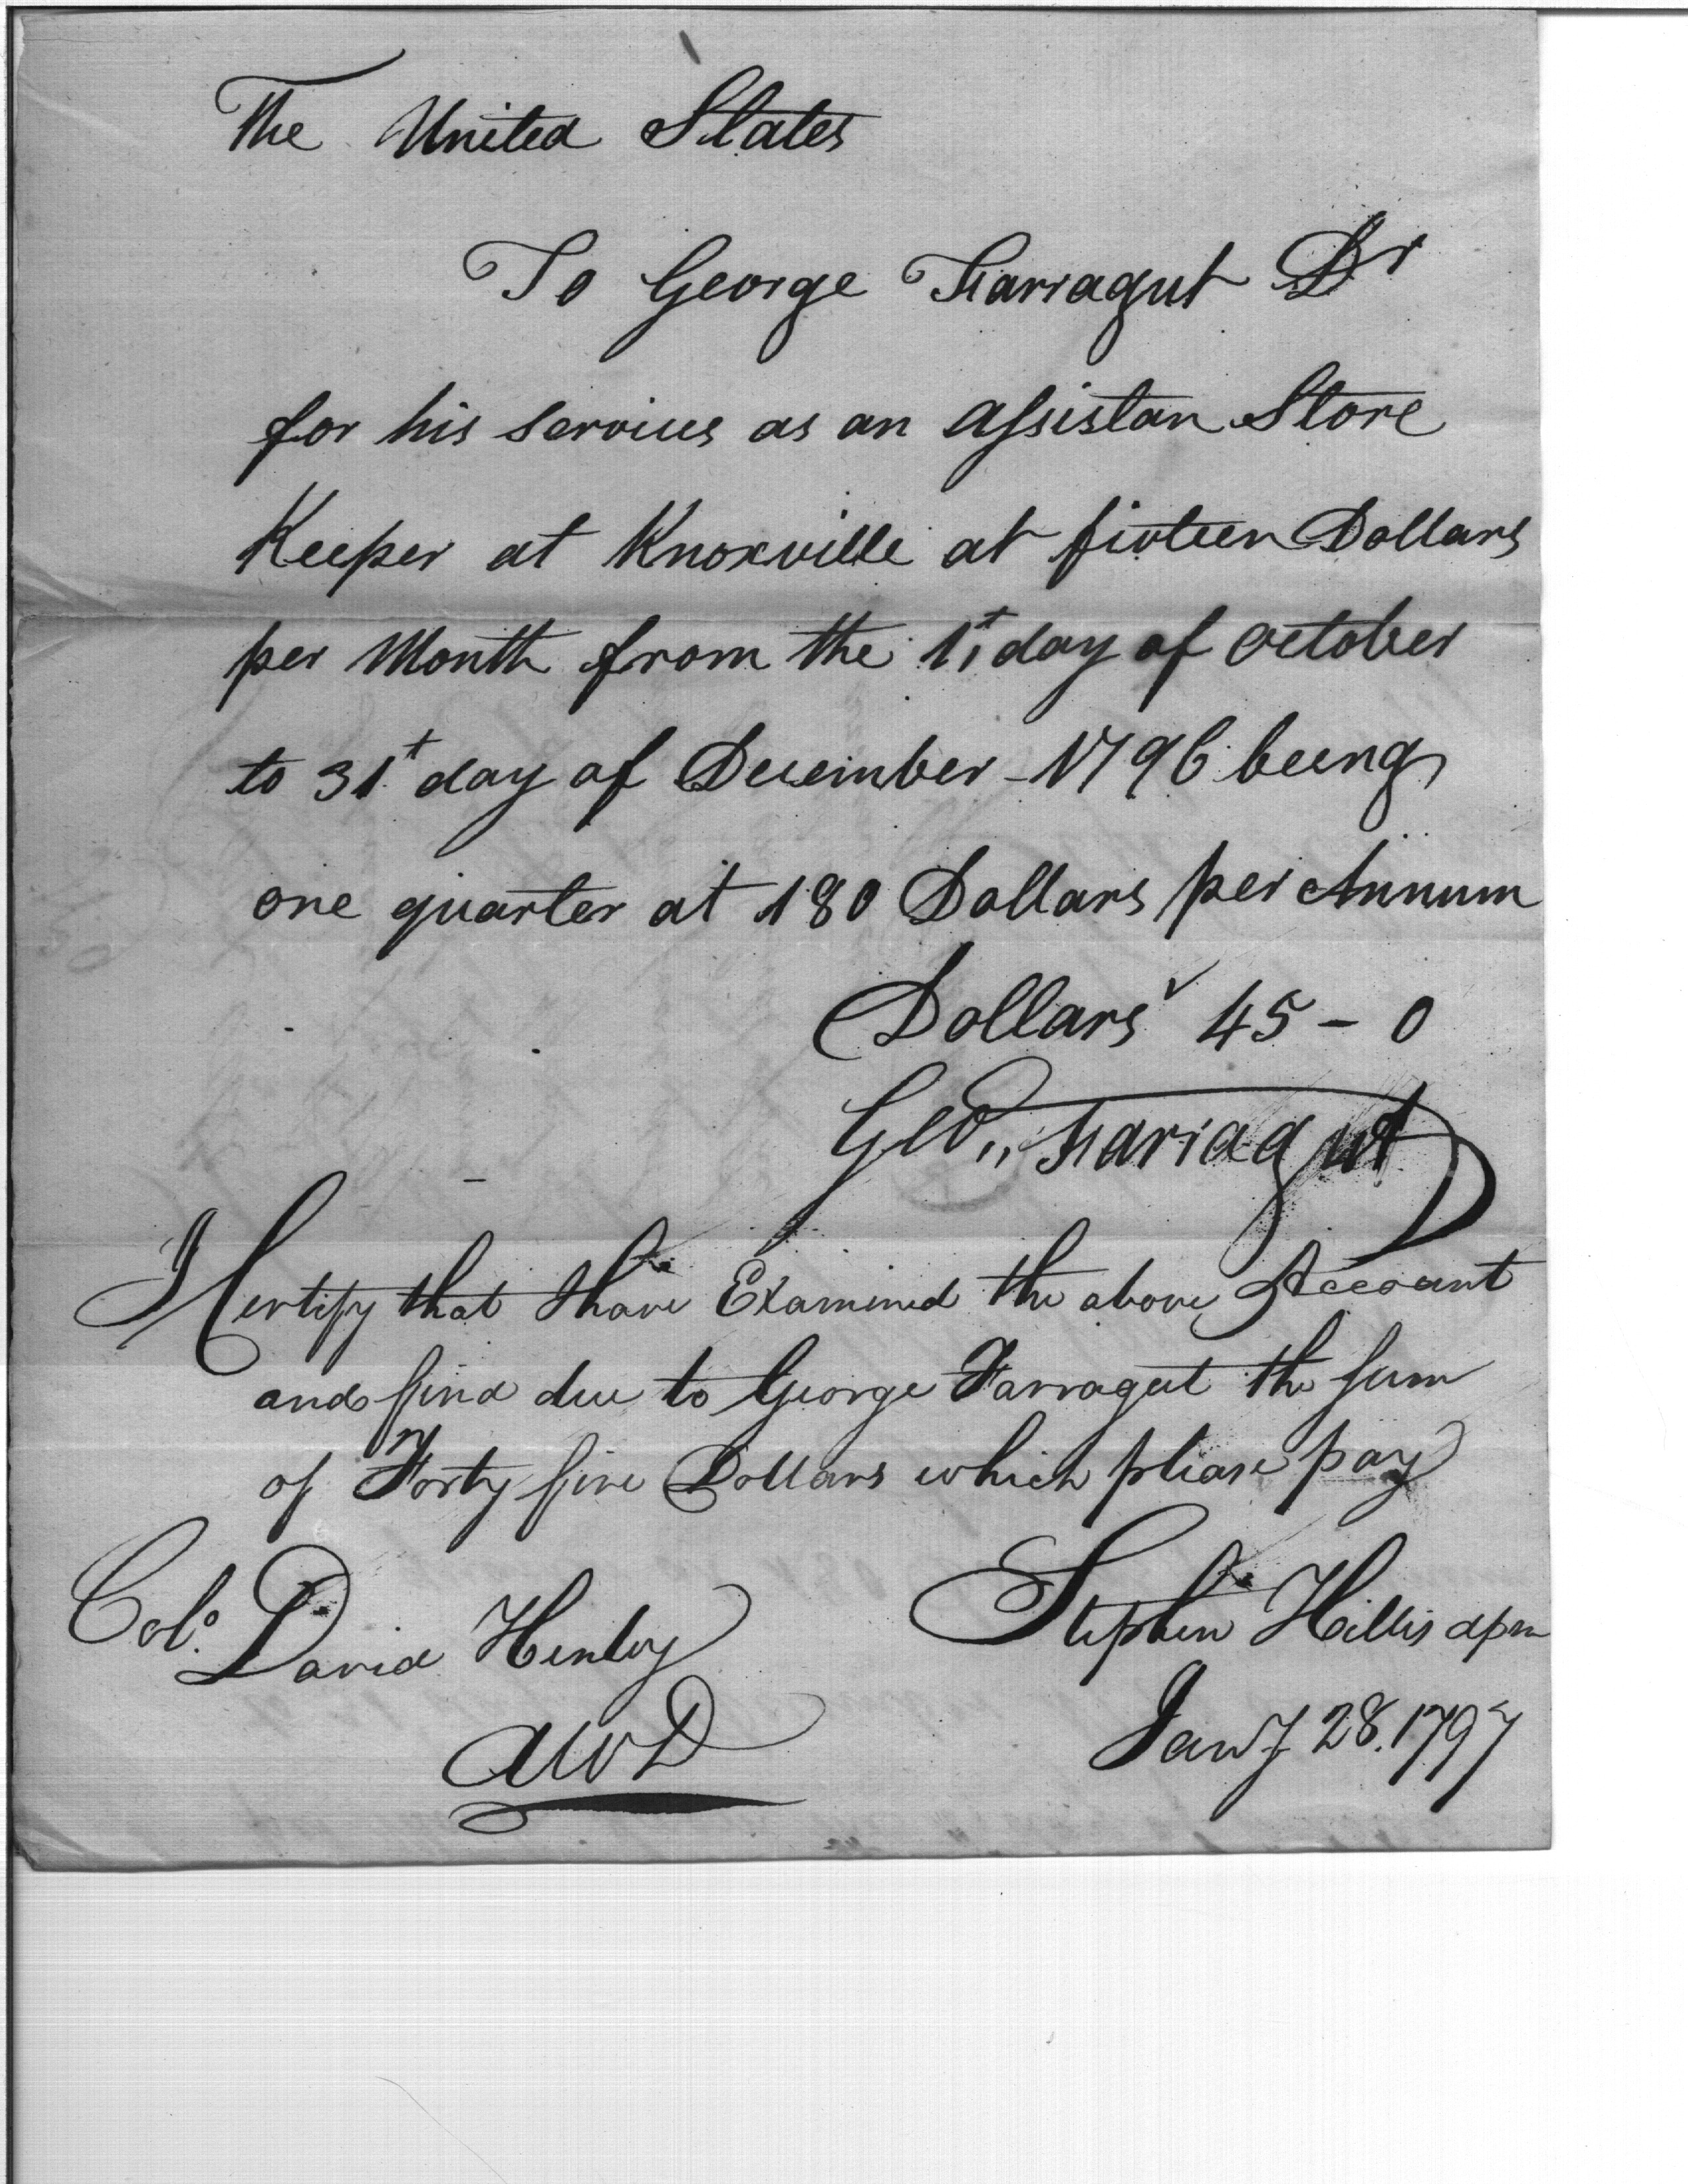 The United States
To George Farragut Dr
for his servicies as an assistan Store
Keeper at Knoxville at fivteen Dollars
per Month from the 1st day of October
to 31t day of Desember - 1796 being
one quarter at 180 Dollars per Annum
Dollars 45 - 0
Geo,, Farragut
I Certify that I have Examined the above Account
and find due to George Farragut the sum
of Forty five Dollars which please pay
Colo. David Henley
Stephen Hillis dpm
AWD
Jany 28. 1797